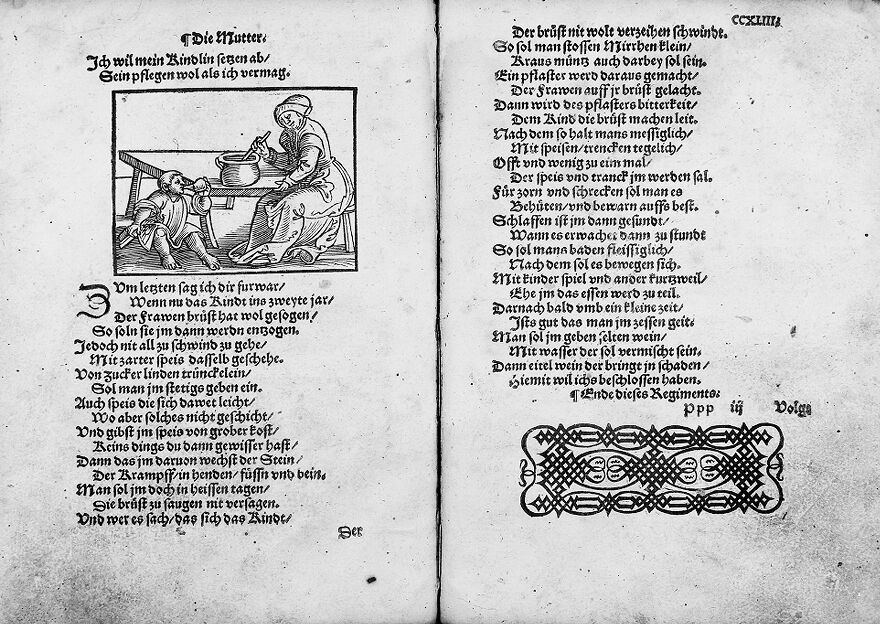 ¶ Die Mutter.
Ich wil mein Kindlin setzen ab/
Sein pflegen wol als ich vermag.
ZVm letzten sag ich dir furwar/
Wenn nu das Kindt ins zweyte jar/
Der Frawen brüst hat wol gesogen/
So soln sie jm dann werdn entzogen.
Jedoch nit all zu schwind zu gehe/
Mit zarter speis dasselb geschehe.
Von zucker linden trünckelein/
Sol man jm stetigs geben ein.
Auch speis die sich dawet leicht/
Wo aber solches nicht geschicht/
Vnd gibst jm speis von grober kost/
Keins dings du dann gewisser hast/
Dann das jm daruon wechst der Stein/
Der Krampff/ in henden/ füssn vnd bein.
Man sol jm doch in heissen tagen/
Die brüst zu saugen nit versagen.
Vnd wer es sach/ das sich das Kindt/
Der
CCXLIII.
Der brüst nit wolt verzeihen schwindt.
So sol man stossen Mirrhen klein/
Kraus müntz auch darbey sol sein.
Ein pflaster werd daraus gemacht/
Der Frawen auff jr brüst gelacht.
Dann wird des pflasters bitterkeit/
Dem Kind die brüst machen leit.
Nach dem so halt mans messiglich/
Mit speisen/ trencken tegelich/
Offt vnd wenig zu eim mal/
Der speis vnd tranck jm werden sal.
Für zorn vnd schrecken sol man es
Behüten/ vnd bewarn auffs best.
Schlaffen ist jm dann gesundt/
Wann es erwachet dann zu stundt
So sol mans baden fleissiglich/
Nach dem sol es bewegen sich.
Mit kinder spiel vnd ander kurtzweil/
Ehe jm das essen werd zu teil.
Darnach bald vmb ein kleine zeit/
Ists gut das man jm zessen geit.
Man sol jm geben selten wein/
Mit wasser der sol vermischt sein.
Dann eitel wein der bringt jn schaden/
Hiemit wil ichs beschlossen haben.
¶ Ende dieses Regiments.
Ppp iij Volgt